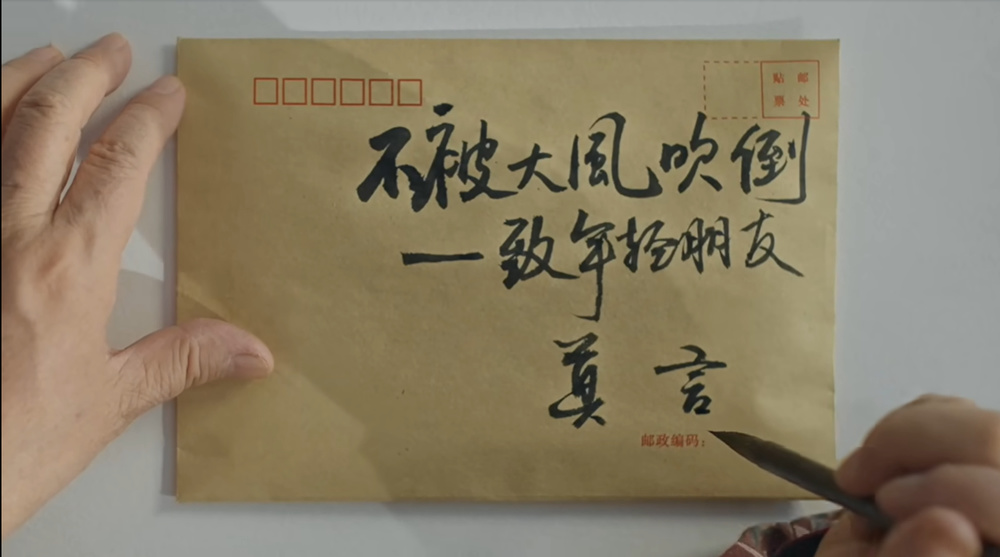 贴 邮
票 处
不被大風吹倒
一致年轻朋友
莫 言
邮政编码：